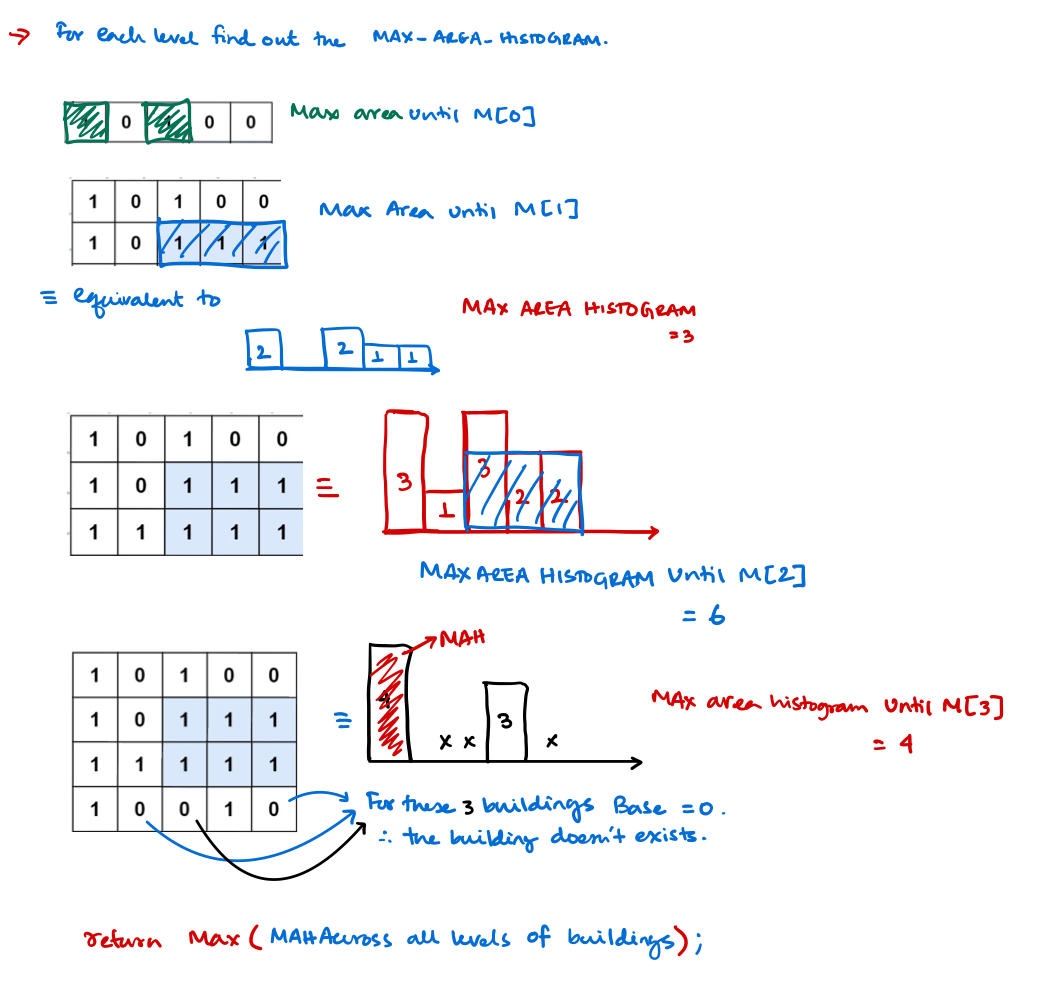 → For each level find out the MAX-AREA-HISTOGRAM.
0 0 0 Max area until M[0]
1 0 1 0 0
1 0 1 1 1
Max Area until M[1]
≡ equivalent to
MAX AREA HISTOGRAM
=3
2 2 1 1
1 0 1 0 0
1 0 1 1 1
1 1 1 1 1
≡
3 1 3 2 2
MAX AREA HISTOGRAM Until M[2]
= 6
→MAH
1 0 1 0 0
1 0 1 1 1
1 1 1 1 1
1 0 0 1 0
≡
4 x x 3 x
MAx area histogram Until M[3]
= 4
For these 3 buildings Base =0.
∴ the building doesn't exists.
return Max( MAH Across all levels of buildings);